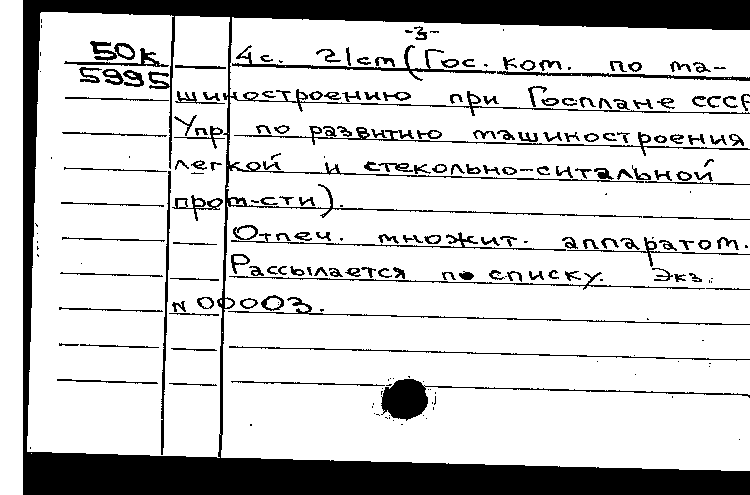 -3-
50к 4с. 21cm (Гос. ком. по ма-
5995
шиностроению при Госплане СССР
Упр. по развитию машиностроения
легкой и стекольно-ситальной
пром-сти).
Отпеч. множит. аппаратом.
Рассылается по списку. Экз.
N 00003.